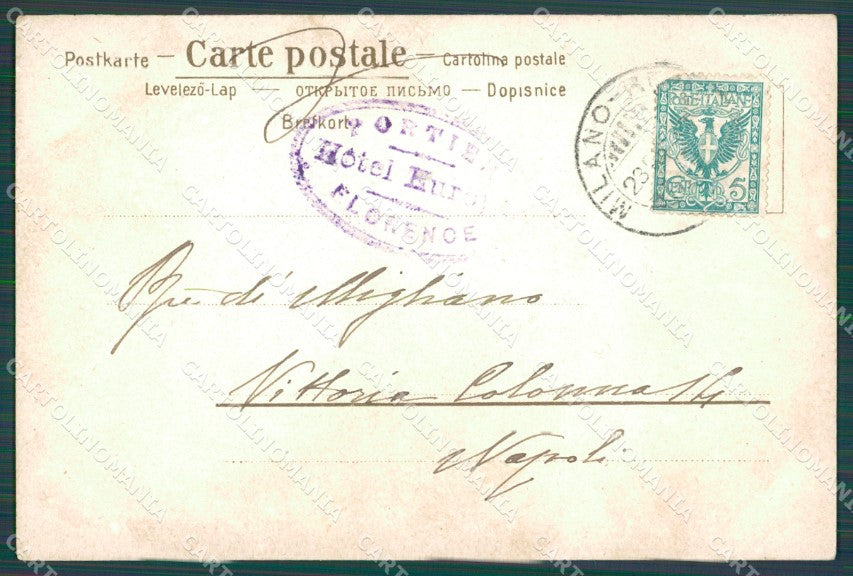 Postkarte — Carte postale — Cartolina postale
Levelező-Lap — ОТКРЫТОЕ ПИСЬМО — Dopisnice
Brefkort
PORTIE
Hôtel Euro
FLORENCE
MILANO
23
POSTE ITALIANE
CENT. 5
di Migliano
Vittoria Colonna 14
Napoli
CARTOLINOMANIA